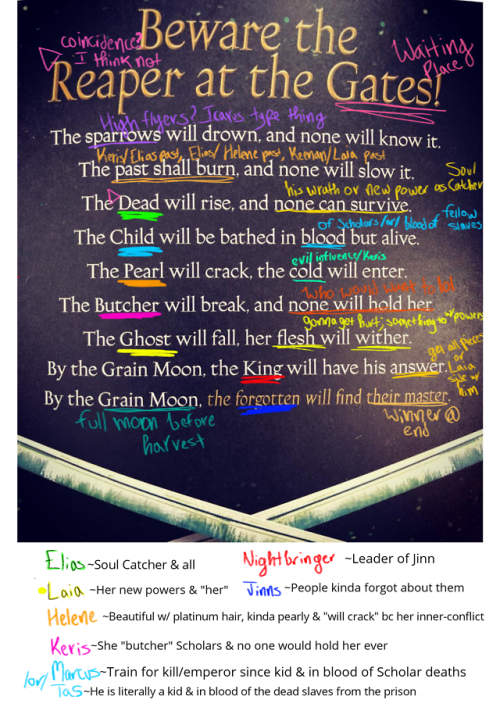 coincidence? Beware the
I think not
Waiting
Place
Reaper at the Gates!
High flyers? Icarus type thing
The sparrows will drown, and none will know it.
Keris/Elias past, Elias/Helene past, Keenan/Laia past
The past shall burn, and none will slow it.
his wrath or new power as Soul Catcher
The Dead will rise, and none can survive.
of Scholars/or/blood of fellow slaves
The Child will be bathed in blood but alive.
evil influence/Keris
The Pearl will crack, the cold will enter.
who would want to lol
The Butcher will break, and none will hold her.
gonna get hurt; something to w/ powers
The Ghost will fall, her flesh will wither.
get all pieces or Laia side w/ him
By the Grain Moon, the King will have his answer.
By the Grain Moon, the forgotten will find their master.
full moon before
harvest
winner @
end
Elias ~Soul Catcher & all
Nightbringer ~Leader of Jinn
Laia ~Her new powers & "her"
Jinns ~People kinda forgot about them
Helene ~Beautiful w/ platinum hair, kinda pearly & "will crack" bc her inner-conflict
Keris ~She "butcher" Scholars & no one would hold her ever
Marcus ~Train for kill/emperor since kid & in blood of Scholar deaths
/or/ Tas ~He is literally a kid & in blood of the dead slaves from the prison